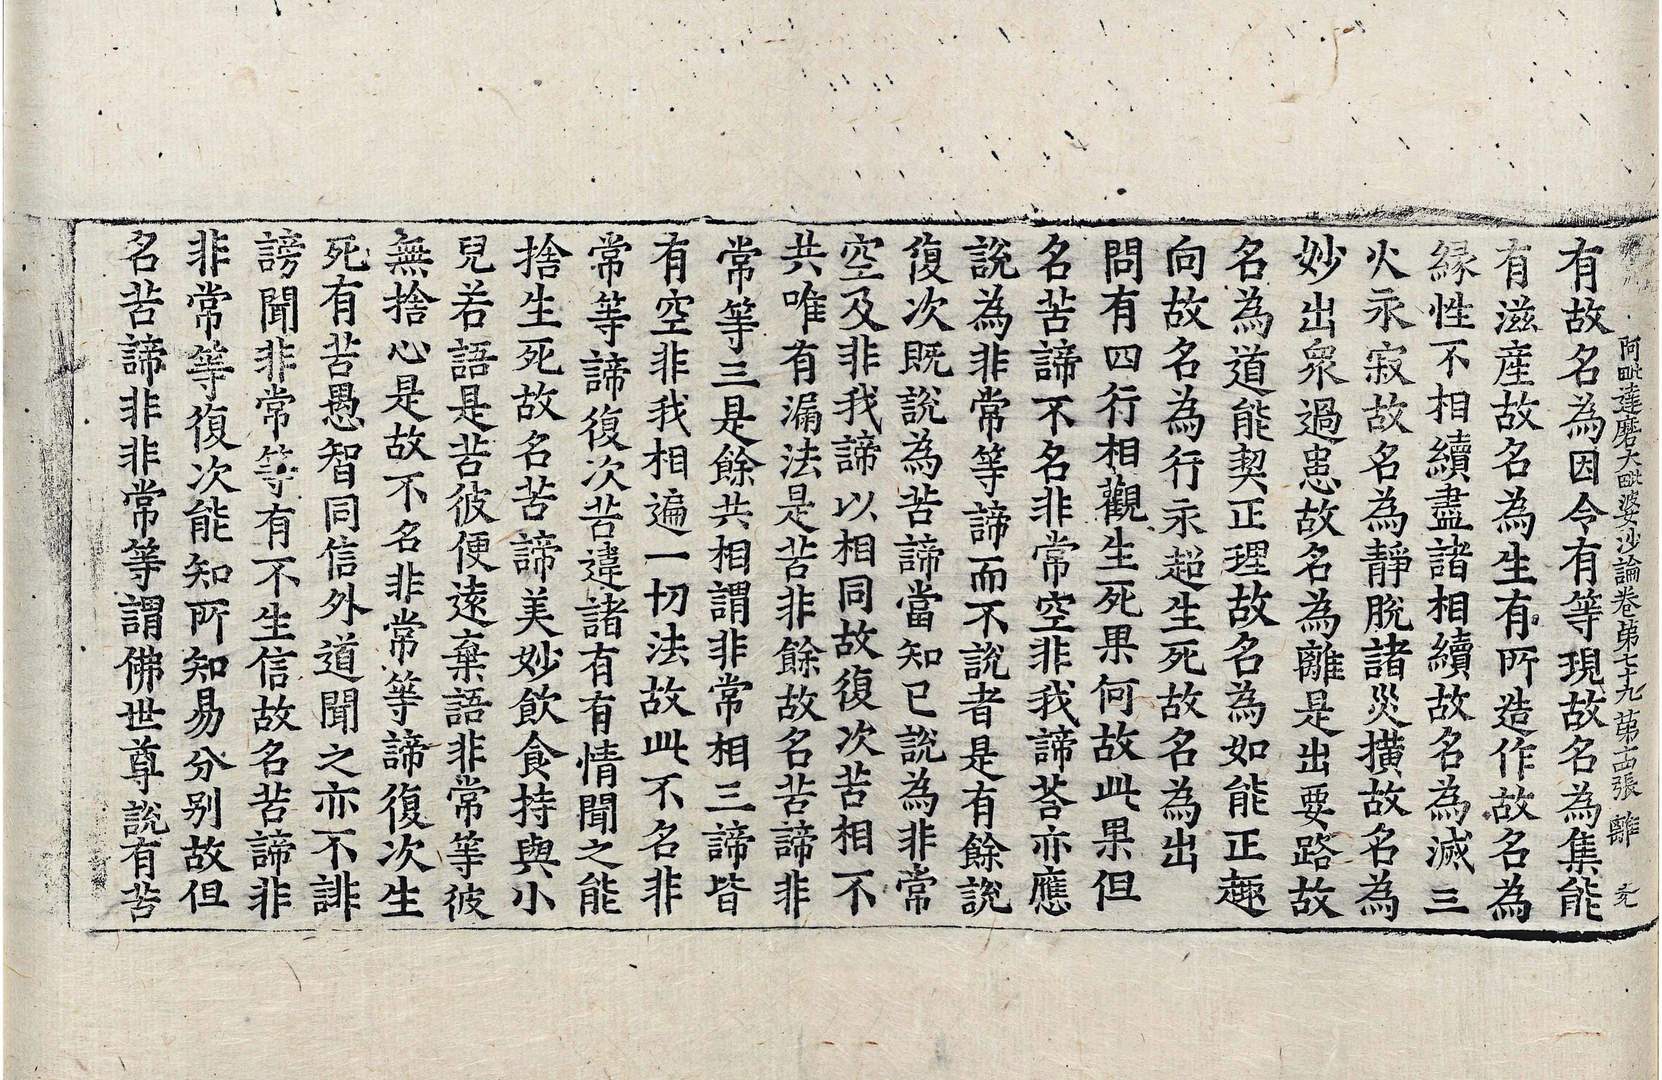 阿毗達磨大毗婆沙論卷第七十九 第十四張 離
有故名為因令有等現故名為集能
有滋産故名為生有所造作故名為
緣性不相續盡諸相續故名為滅三
火永寂故名為靜脫諸災撗故名為
妙出衆過患故名為離是出要路故
名為道能契正理故名為如能正趣
向故名為行永超生死故名為出
問有四行相觀生死果何故此果但
名苦諦不名非常空非我諦荅亦應
說為非常等諦而不說者是有餘說
復次既說為苦諦當知已說為非常
空及非我諦以相同故復次苦相不
共唯有漏法是苦非餘故名苦諦非
常等三是餘共相謂非常相三諦皆
有空非我相遍一切法故此不名非
常等諦復次苦違諸有有情聞之能
捨生死故名苦諦美妙飲食持與小
兒若語是苦彼便遠棄語非常等彼
無捨心是故不名非常等諦復次生
死有苦愚智同信外道聞之亦不誹
謗聞非常等有不生信故名苦諦非
非常等復次能知所知易分别故但
名苦諦非非常等謂佛世尊說有苦